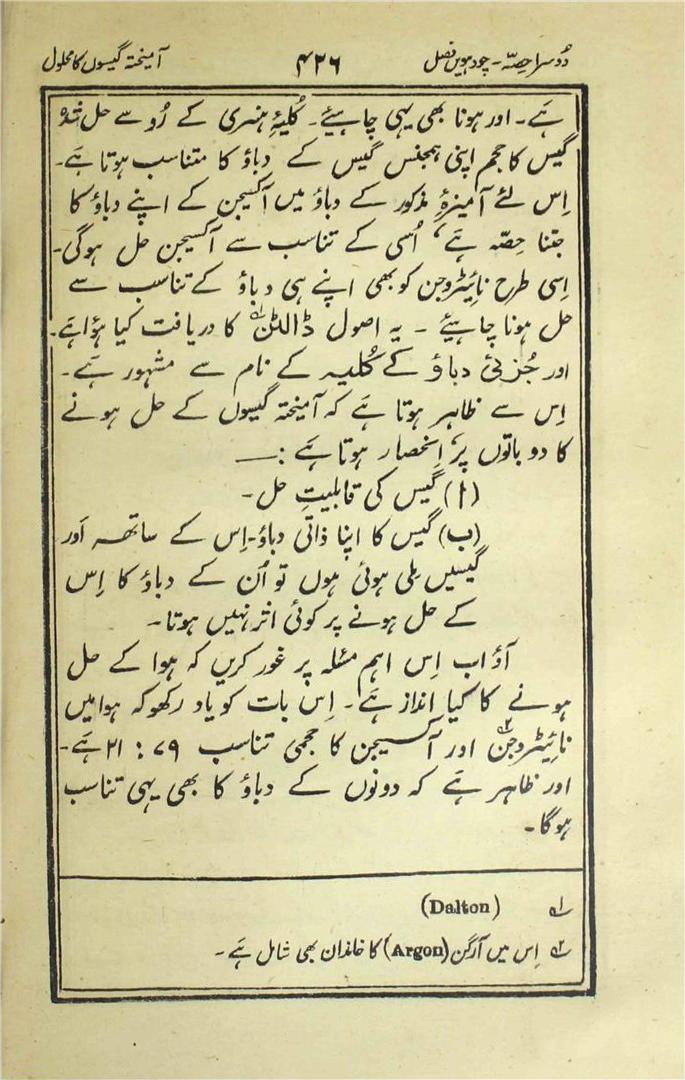 دُوسرا حِصّہ - چودہویں فصل ۴۲۶ آمیختہ گیسوں کا محلول
ہَے - اور ہونا بھی یہی چاہیئے - کُلیۂ ہنری کے رُو سے حل شُدہ
گیس کا حجم اپنی ہمجنس گیس کے دباؤ کا متناسب ہوتا ہَے -
اِس لئے آمیزۂ مذکور کے دباؤ میں آکسیجن کے اپنے دباؤ کا
جتنا حِصّہ ہَے ، اُسی کے تناسب سے آکسیجن حل ہوگی -
اِسی طرح نائیٹروجن کو بھی اپنے ہی دباؤ کے تناسب سے
حل ہونا چاہیئے - یہ اصول ڈالٹن۱؎ کا دریافت کیا ہؤا ہَے -
اور جُزئی دباؤ کے کُلیہ کے نام سے مشہور ہَے -
اِس سے ظاہر ہوتا ہَے کہ آمیختہ گیسوں کے حل ہونے
کا دو باتوں پر اِنحصار ہوتا ہَے :—
(ا) گیس کی قابلیتِ حل -
(ب) گیس کا اپنا ذاتی دباؤ - اِس کے ساتھ اَور
گیسیں مِلی ہوئی ہوں تو اُن کے دباؤ کا اِس
کے حل ہونے پر کوئی اثر نہیں ہوتا -
آؤ اب اِس اہم مسئلہ پر غور کریں کہ ہوا کے حل
ہونے کا کیا انداز ہَے - اِس بات کو یاد رکھو کہ ہوا میں
نائیٹروجن۲؎ اور آکسیجن کا حجمی تناسب ۷۹ : ۲۱ ہَے -
اور ظاہر ہَے کہ دونوں کے دباؤ کا بھی یہی تناسب
ہوگا -
۱؎ (Dalton)
۲؎ اِس میں آرگن (Argon) کا خاندان بھی شامل ہَے -